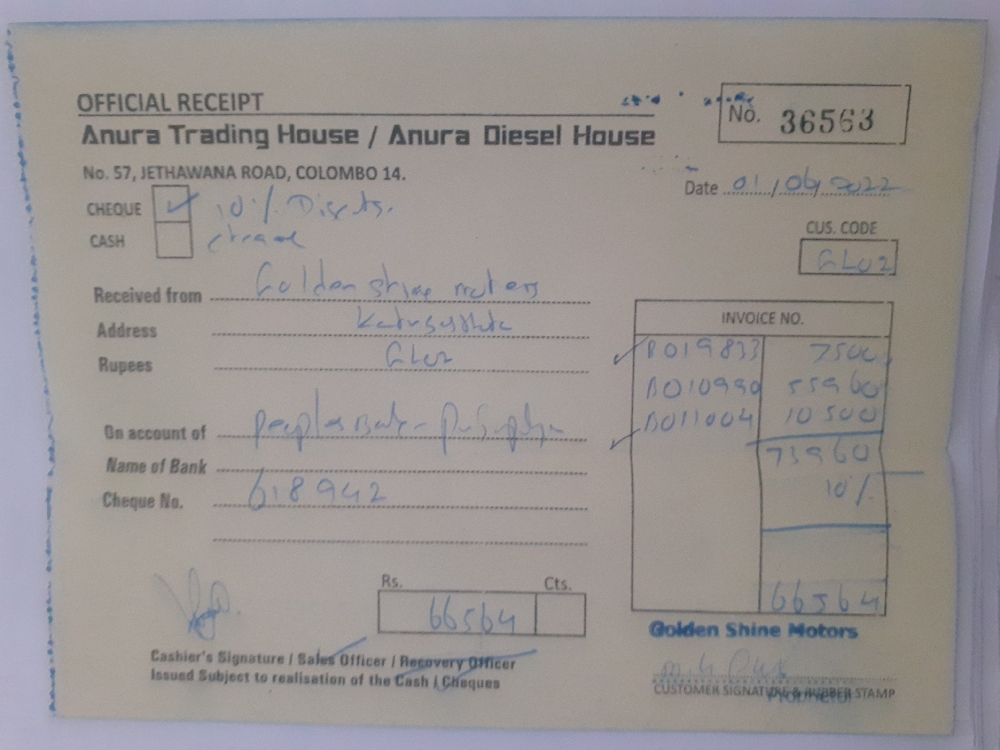 OFFICIAL RECEIPT
No. 36563
Anura Trading House / Anura Diesel House
No. 57, JETHAWANA ROAD, COLOMBO 14.
Date 01/06/2022
CHEQUE ✓ 10% 
CASH
CUS. CODE
GL02
Received from Golden Shine Motors
Address
Rupees GL02
On account of Peoples Bank -
Name of Bank
Cheque No. 618942
INVOICE NO.
B019833 7500
B010990 55960
B011004 10500
73960
10%
66564
Rs. Cts.
66564
Golden Shine Motors
Cashier's Signature / Sales Officer / Recovery Officer
Issued Subject to realisation of the Cash / Cheques
CUSTOMER SIGNATURE & RUBBER STAMP
Proprietor